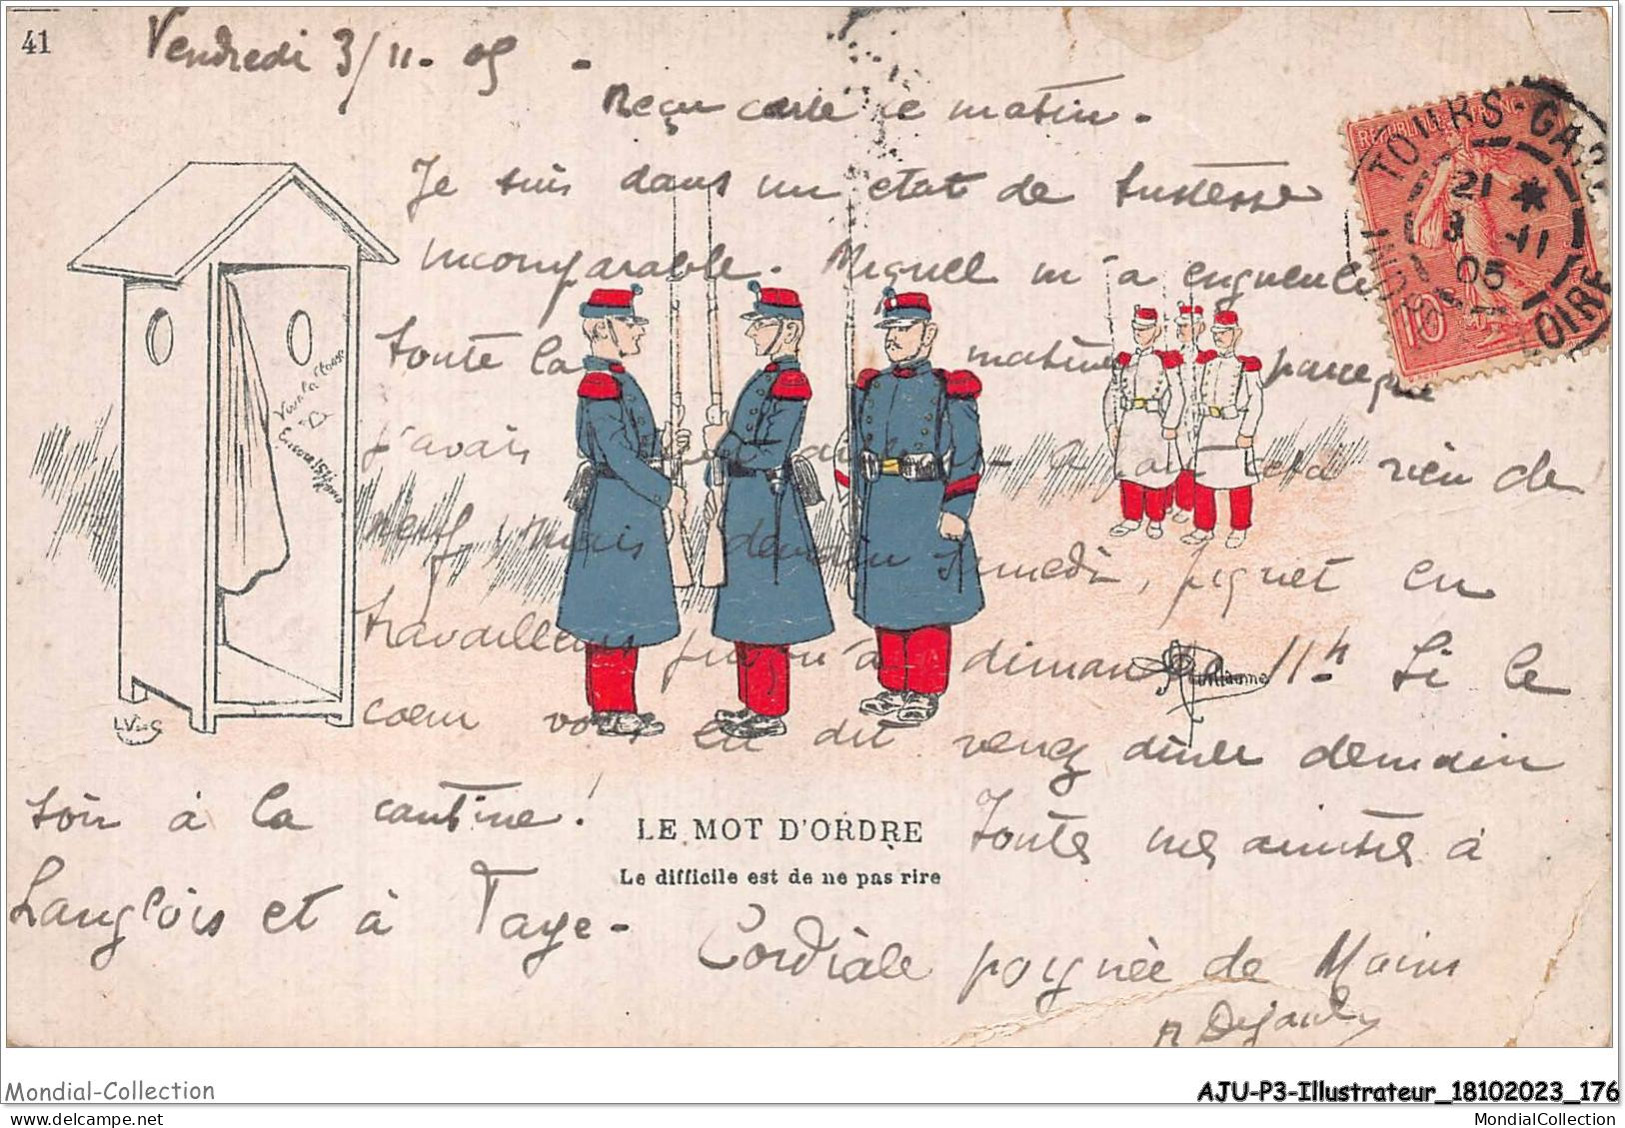 41
Vendredi 3/11-05 -
Reçu carte ce matin.
Je suis dans un etat de tristesse
incomparable. Miguel m'a engueulé
toute la matinée parceque
j'avais rien de
neuf, mais demain samedi, piquet en
travailleurs jusqu'à dimanche 11h. Si le
coeur vous en dit venez diner demain
soir à la cantine!
LE MOT D'ORDRE
Le difficile est de ne pas rire
Toutes mes amitiés à
Langlois et à Taye-
Cordiale poignée de Mains
Vive la classe
Encore
A Guillaume
REPUBLIQUE FRANC
10
TOURS-GARE
21 *
3 -11
05
INDRE
LOIRE
Mondial-Collection
AJU-P3-Illustrateur_18102023_176
MondialCollection